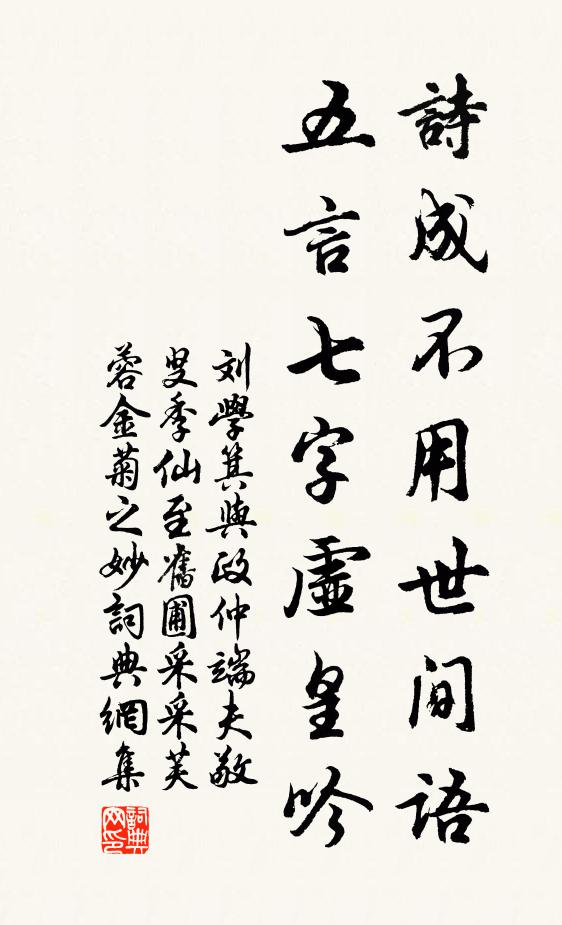 詩成不用世間語
五言七字虛皇吟
刘學箕與政仲端夫敬
叟季仙至舊圃采采芙
蓉金菊之妙詞典網集
詞典
网印